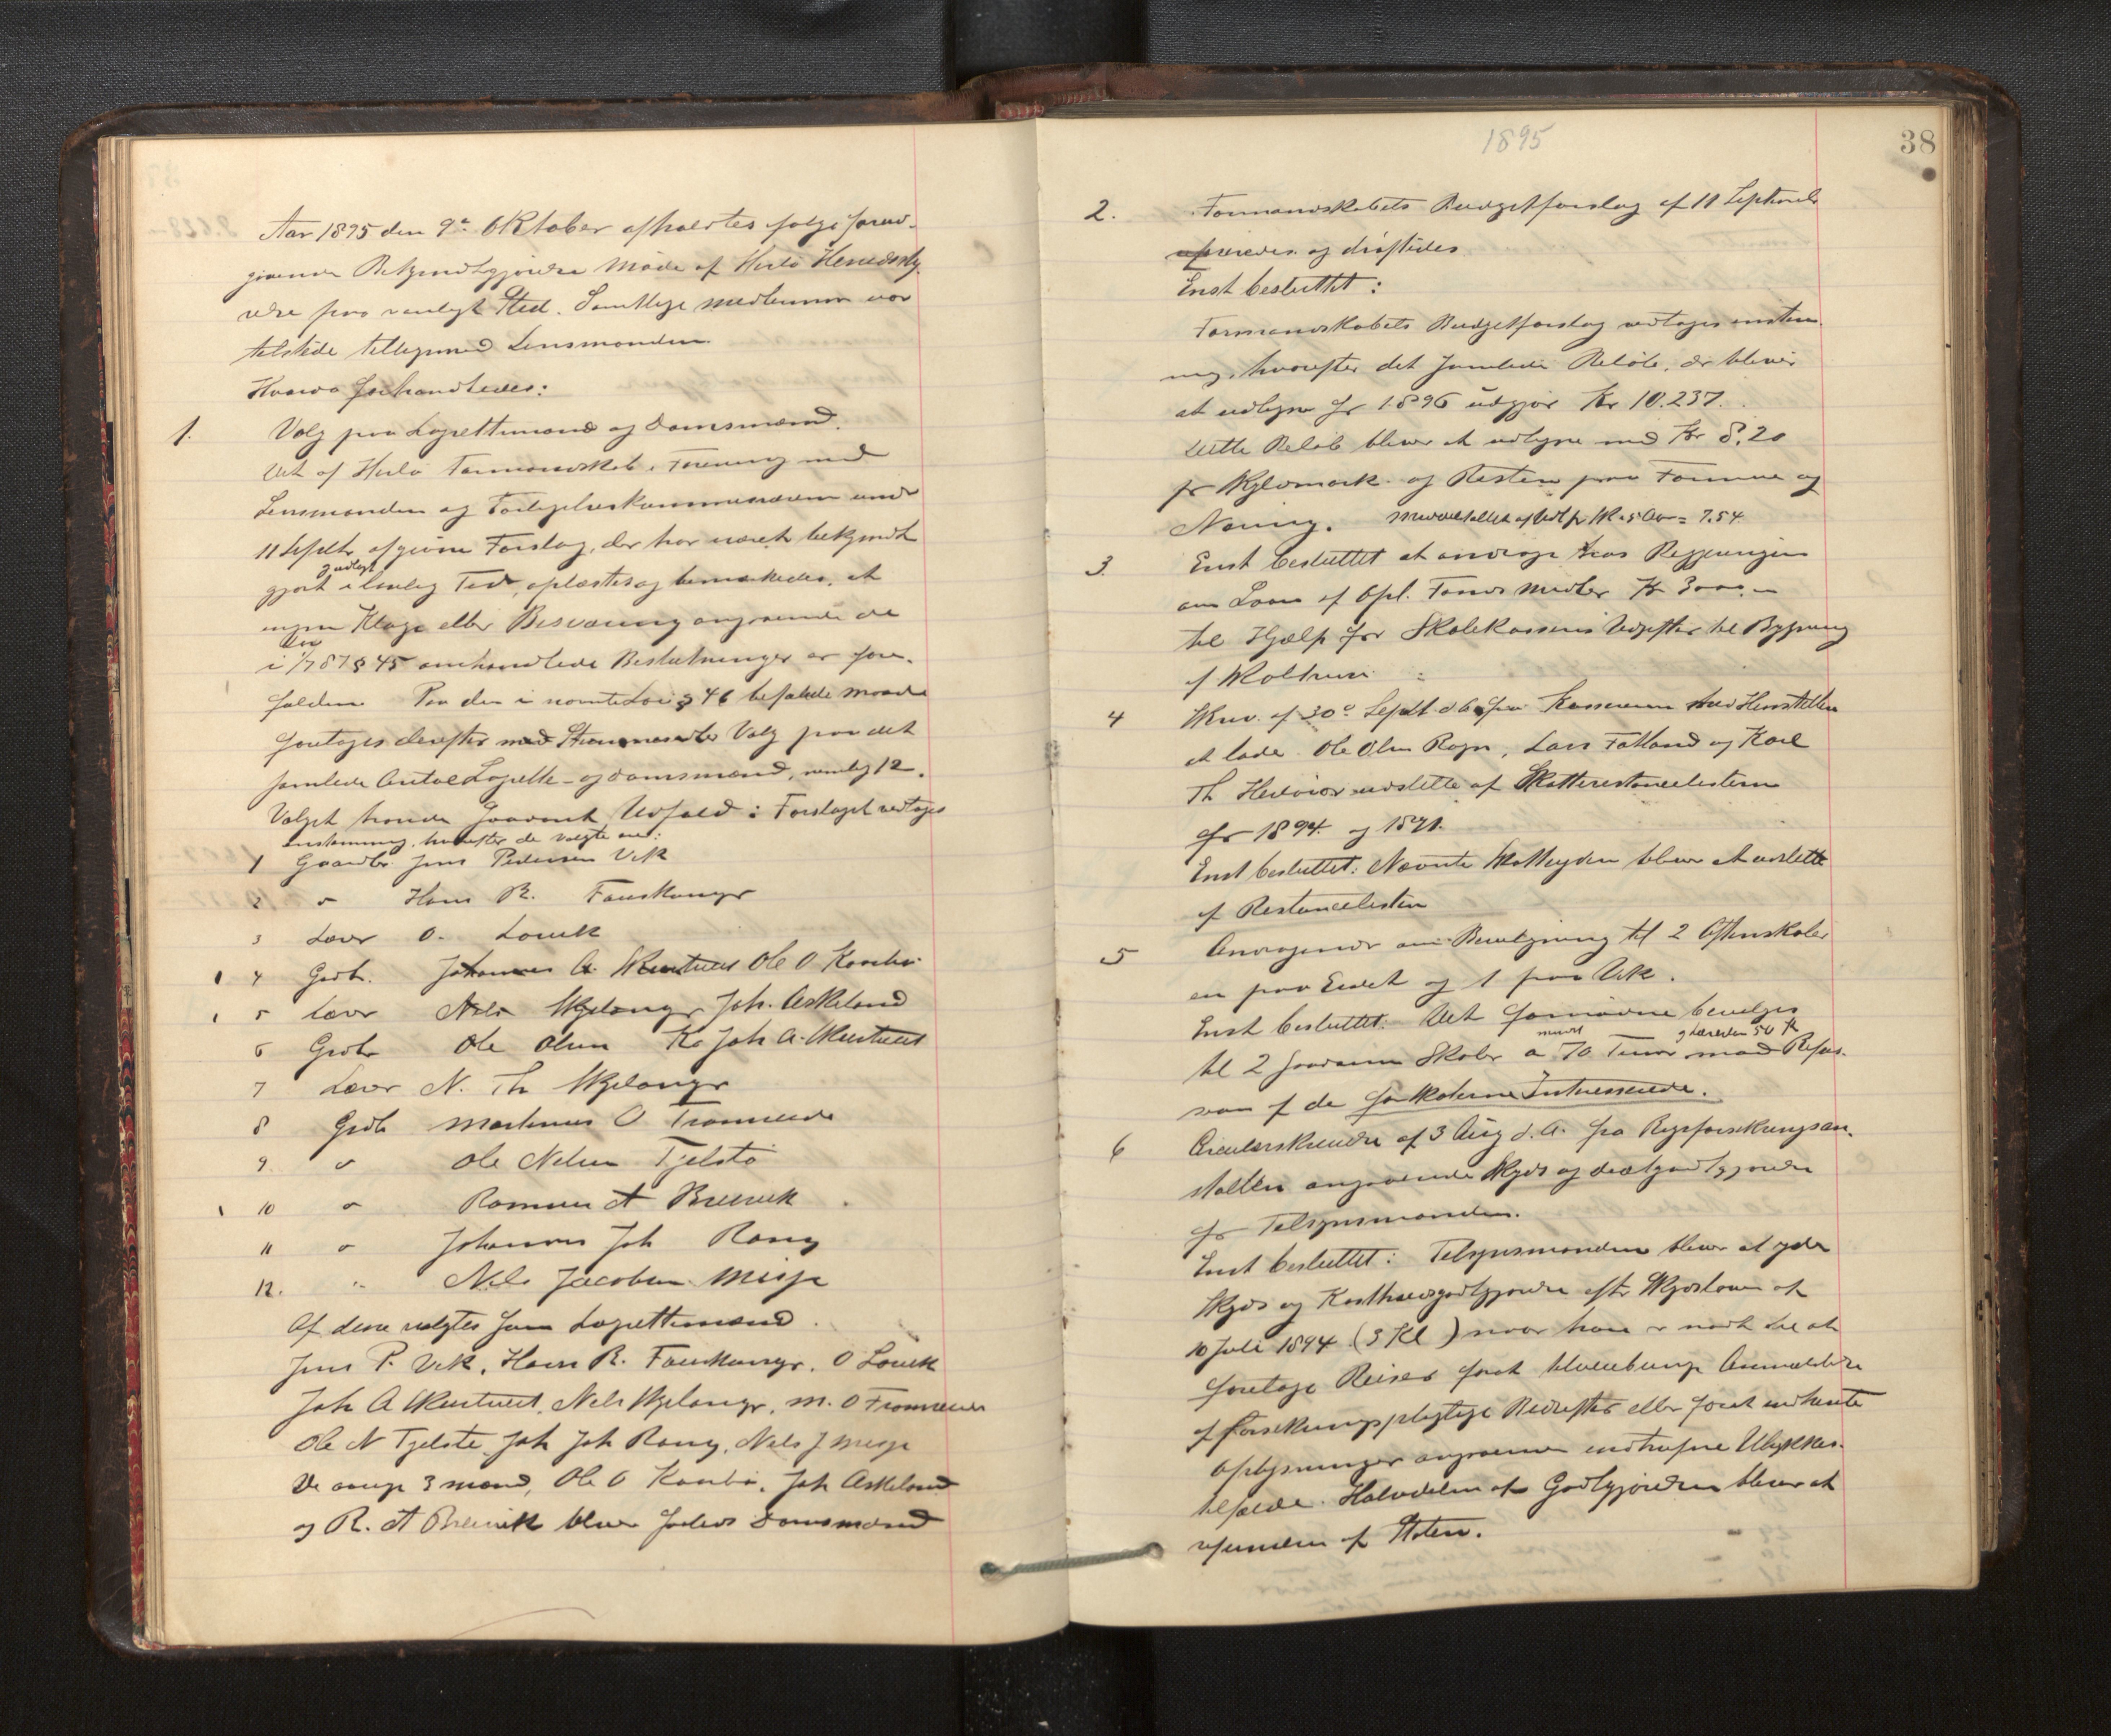 Aar 1895 den 9de Oktober afholdtes følge forud-
gaaende Bekjendtgjørelse Møde af Herlø Herredssty-
relse paa vanligt Sted. Samtlige medlemmer var
tilstede tilligemed Lensmanden.
Hvorda forhandledes:
1. Valg paa Lagrettemænd og Domsmænd.
Det af Herlø Formandskab i Forening med
Lensmanden og Forligelseskommissærerne under
11 Septbr afgivne Forslag, der har været bekjendt
gjort i lovlig Tid, oplæstes og bemærkedes, at
ingen Klage eller Besværing angaaende de
i Lov 1/7 87 § 45 omhandlede Beslutninger er fore-
falden. Paa den i nævnte Lov § 46 befalede Maade
foretoges derefter med Stemmesedler Valg paa det
samlede Antal Lagrette- og Domsmænd, nemlig 12.
Valget havde saadant Udfald: Forslaget vedtoges
enstemmig, hvorefter de valgte ere:
1 Gaardbr. Jens Pedersen Vik
2 " Hans R. Fauskanger
3 Lærer O. Louik
4 Grdb. Johannes A. Skurtveit Ole O Kårbø
5 Lærer Nels Skjelanger Joh. Askeland
6 Grdbr Ole Olsen Kå Joh A. Skurtveit
7 Lærer N. Th Skjelanger
8 Grdb Martinus O Tromiede
9 " Ole Nelsen Tjelstø
10 " Rasmus A Breivik
11 " Johannes Joh Rong
12. " Nils Jacobsen Misje
Af disse valgtes som Lagrettemænd
Jens P. Vik, Hans R. Fauskanger, O Louik
Joh A Skurtveit, Nels Skjelanger, M. O
Ole N Tjelstø, Joh Joh Rong, Nels J Misje
De øvrige 3 mænd, Ole O Kårbø, Joh Askeland
og R. A Breivik bliver saaledes Domsmænd
1895
38
2. Formandskabets Budgetforslag af 11 Septembr
og drøftedes
Enst besluttet:
Formandskabets Budgetforslag vedtages enstem-
mig, hvorefter det samlede Beløb, der bliver
at udligne for 1896 udgjør Kr 10.237.
Dette Beløb bliver at udligne med Kr 8.20
pr Skyldmark og Resten paa Formue og
Næring. = 7.54
3. Enst besluttet at andrage hos Regjeringen
om Laan af Opl. Fonds Midler Kr 3000,-
til Hjælp for Skolekassens Udgifter til Bygning
af Skolhuse
4 Skriv. af 30te Septbr d A. fra Kassereren med Henstillen
at lade Ole Olsen Rogn, Lars Fatland og Karl
Th Herløiør udslette af Skatterestancelisten
for 1894 og 1891.
Enst besluttet: Nævnte Skatteydere bliver at udslette
af Restancelisten
5 Andragender om Bevilgning til 2 Aftenskoler
en paa Eidet og 1 paa Vik.
Enst besluttet: Det fornødne bevilges
til 2 saadanne Skoler a mindst 70 Timer mod Refu-
sion af de for Skolerne Interesserede.
6 Circulærskrivelse af 3 Aug d. A. fra Rigsforsikringsan-
stalten angaaende Skyds og diætgodtgjørelse
for Tilsynsmanden.
Enst besluttet: Tilsynsmanden bliver at yde
Skyds og Kosthavsgodtgjørelse efter Skydsloven af
10 Juli 1894 (3 Kl) naar han er nødt til at
foretage Reiser forat tilveiebringe Anmeldelse
af forsikringspligtige Bedrifter eller forat indhente
Oplysninger angaaende indtrufne Ulykkes-
tilfælde. Halvdelen af Godtgjørelsen bliver at
refundere af Staten.